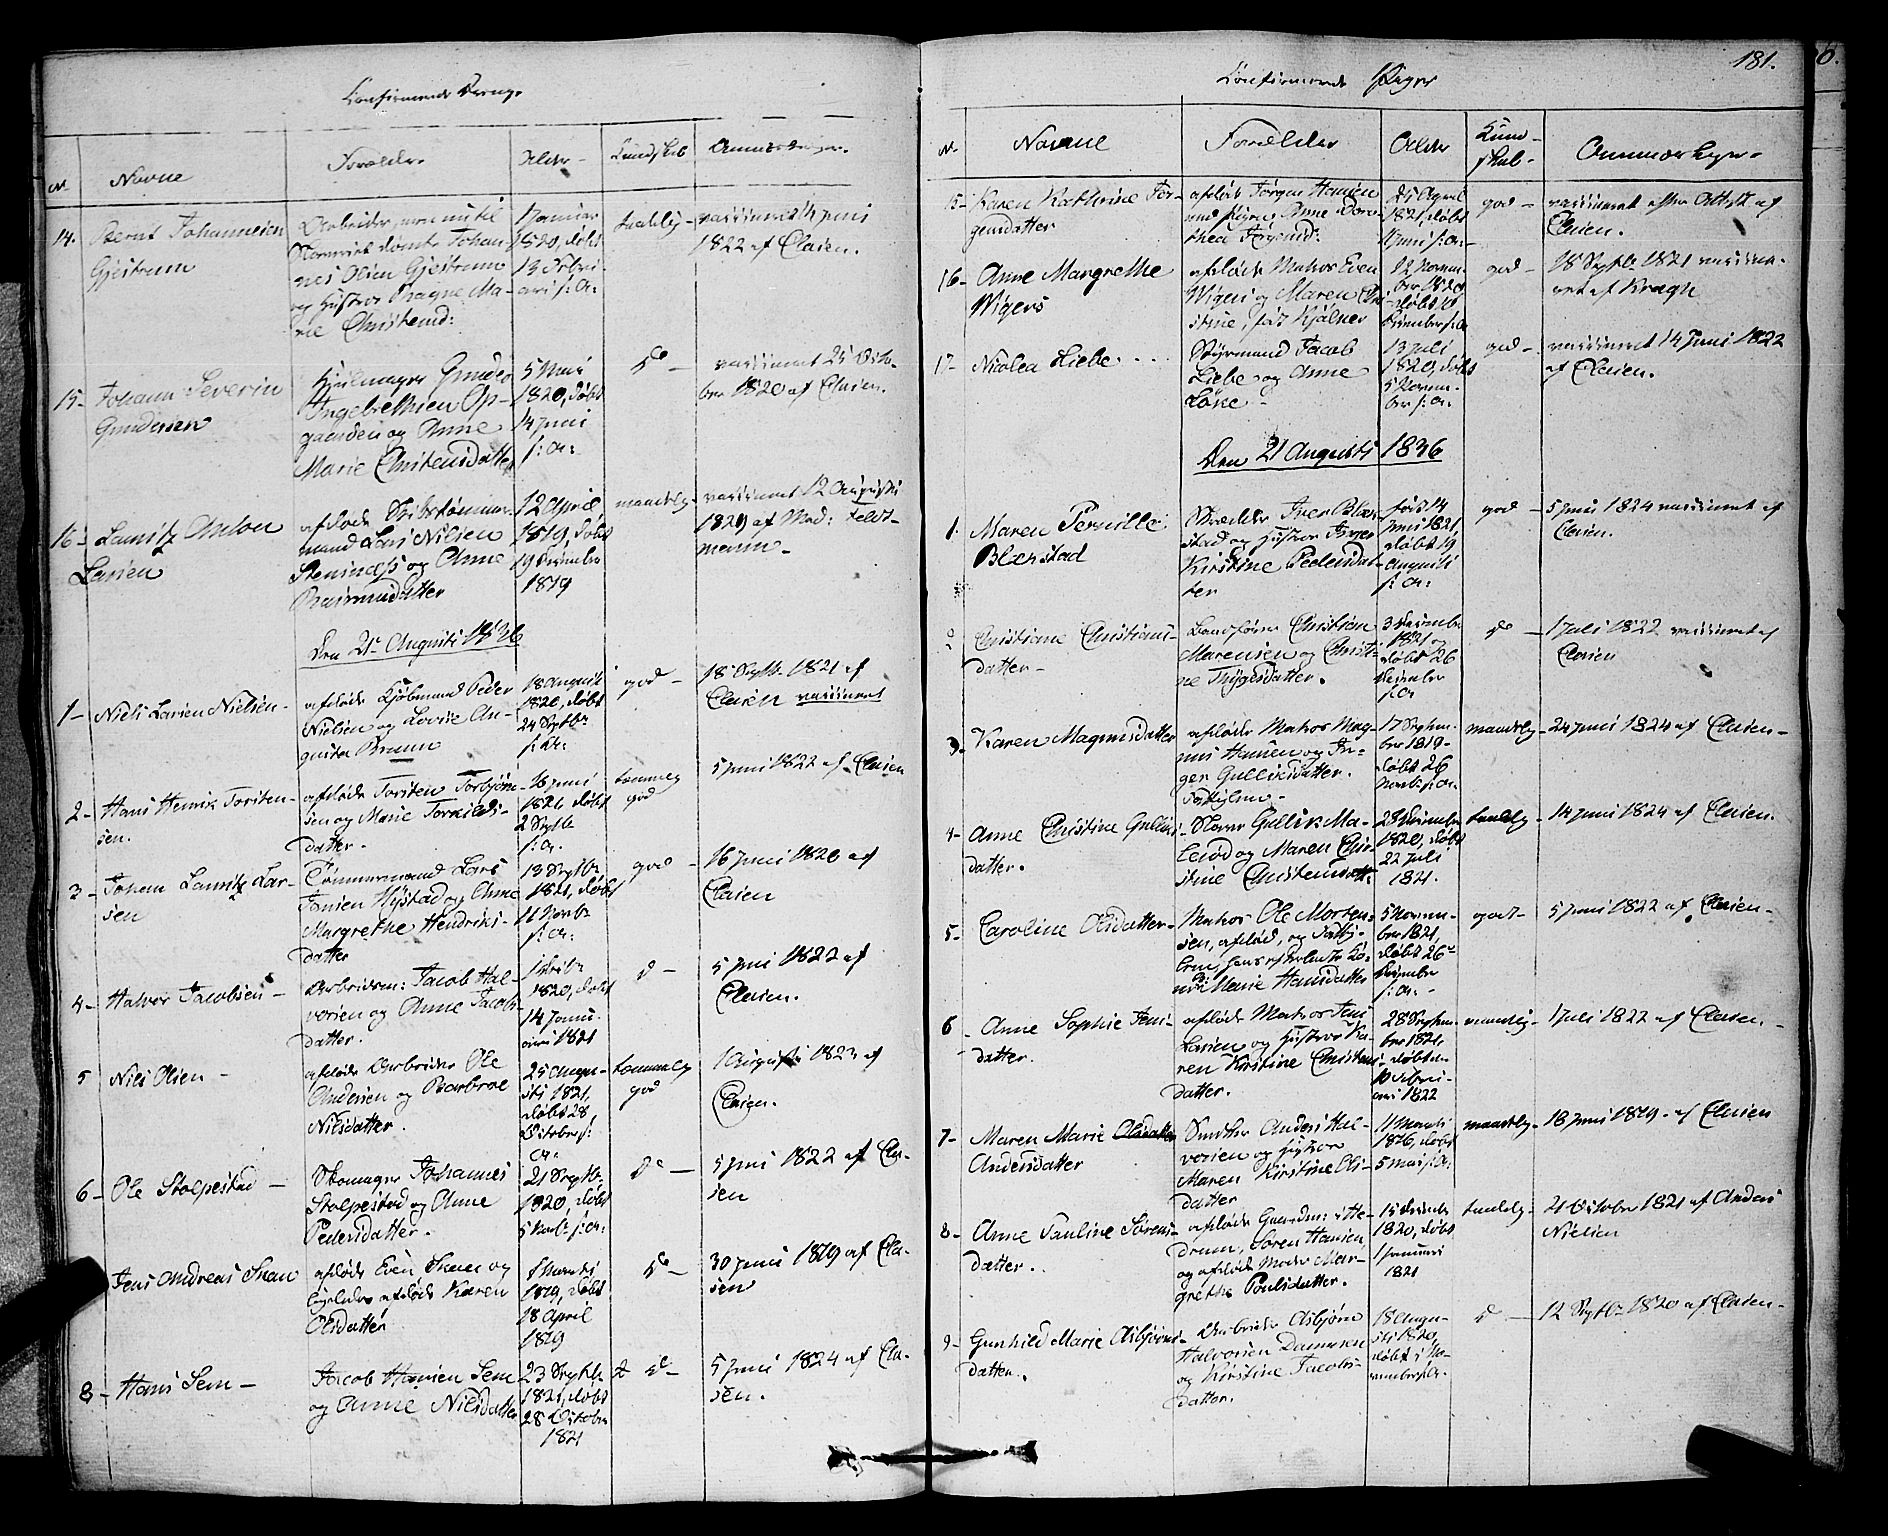 Confirmerede Drenge
No
Navne
Forældre
Alder
Kundskab
Anmærkninger
14.
Bernt Johannesen
Gjestrum
Johan-
nes Olsen Gjestrum
og Hustrue Ragne Ma-
rie Christensd:
1 Januar
1820, døbt
13 Febru-
arii s: A:
taalelig
vaccineret 14 Juni
1822 af Clasen.
15-
Johann Severin
Gundersen
Hjulmager Gunder
Ingebrethsen Op-
gaarden og Anne
Marie Christensdatter
5 Mai
1820, døbt
14 Juni
s: A:
do
vaccineret 25 Octo-
ber 1820 af Clasen.
16-
Lauritz Anton
Larsen
afdøde Skibstømmer-
mand Lars Nilsen
Steninges og Anne
Rasmusdatter
12 April
1819, døbt
19 December
1819
maadelig
vaccineret 12 Augusti
1829 af Mad: Feldt-
mann
Den 21 Augusti 1836
1-
Niels Larsen Nielsen-
afdøde Kjøbmand Peder
Nielsen og Lovise Au-
gusta Bruun
18 August
1820, døbt
24 Septbr
s: A:
god
18 Septb. 1821 af
Clasen vaccineret
2-
Hans Henrik Torsten-
sen.
afdøde Torsten Torbjørn-
sen og Marie Torkilds-
datter.
16 Juni
1821, døbt
2 Septb
s: A:
temmelig
god
5 Juni 1822 af Clasen
3-
Johan Lauritz Lar-
sen
Tømmermand Lars
Jansen Hystad og Anne
Margrethe Hendriks-
datter
13 Septb
1821, døbt
11 Novb
s: A:
god
16 Juni 1820 af
Clasen
4-
Halvor Jacobsen
Arbeidsm: Jacob Hal-
vorsen og Anne Jacobs-
datter.
1820, døbt
14 Janu-
arii 1821
d-
5 Juni 1822 af
Clasen.
5
Nils Olsen
afdøde Arbeider Ole
Andersen og Barbroe
Nilsdatter.
25 Augu-
sti 1821,
døbt 28
October s:
A:
temmelig
god
1 Augusti 1823 af
Clasen.
6-
Ole Stolpestad
Skomager Johannes
Stolpestad og Anne
Pedersdatter.
21 Septb.
1820, døbt
5 Novb. s: A:
do
5 Juni 1822 af Cla-
sen
Jens Andreas Skau
afdøde Even Skau og
ligeledes afdøde Karen
Olsdatter
1 Martii
1819, døbt
18 April
1819
do
30 Juni 1819 af Cla-
sen
8-
Hans Sem
Jacob Hansen Sem
og Anne Nilsdatter
23 Septb.
1821, døbt
28 October
1821
do
5 Juni 1824 af Cla-
sen.
181.
Confirmerede Piger
No
Navne
Forældre
Alder
Kund-
skab-
Anmærkn.
15-
Karen Kathrine Jør-
gensdatter
afdøde Jørgen Hansen
Anne Doro-
thea Jørgensd:
25 April
1821, døbt
11 Juni s: A:
god
vaccineret efter Attest af
Clasen.
16-
Anne Margrethe
Wigers
afdøde Matros Even
Wigers og Maren Chri-
stine, født Kjølner
12 Novem-
ber 1820
døbt 10
December s: A:
god
18 Septb. 1821 vaccine-
ret af Kragh
17-
Nicolea Liebe
Styrmand Jacob
Liebe og Anne
Løke
13 Juli
1820, døbt
5 Novem-
ber s: A:
god
vaccineret 14 Juni 1822
af Clasen.
Den 21 Augusti 1836
1.
Maren Pernille
Blærstad
Skrædder Iver Blær-
stad og Hustrue Inger
Kirstine Pedersdat-
ter
født 14
Juni 1821
døbt 19
Augusti
s: A:
god
5 Juni 1824 vaccineret af
Clasen.
2
Christiane Christians-
datter
Christian
Marensen og Christi-
ne Thygesdatter.
3 December
1821 og
døbt 26
December
s: A:
do
1 Juli 1822 vaccineret af
Clasen
3-
Karen Magnusdatter
afdøde Matros Mag-
nus Hansen og In-
ger Gulliksdatter.
17 Septem-
ber 1819
døbt 26
Novb. s: A:
maadelig
24 Juni 1824 af Clasen
4-
Anne Christine Gulliks-
datter.
Gullik Ma-
lerød og Maren Chri-
stine Christensdatter
28 December
1820, døbt
22 Juli
1821.
taalelig
14 Juni 1824 af Clasen.
5-
Caroline Olsdatter
Matros Ole Morten-
sen, afdød, og
Marie Hansdatter
5 Novem-
ber 1821,
døbt 26
December
s: A:
godt
5 Juni 1822 af Clasen
6
Anne Sophie Jens-
datter.
afdøde Matros Jens
Larsen og Hustrue Ka-
ren Kirstine Christens-
datter.
28 Septem-
ber 1821,
døbt
10 Febru-
arii 1822
maadelig
1 Juli 1822 af Clasen
7-
Maren Marie Olsdatter
Andersdatter
Smeden Anders Hal-
vorsen og Hustrue
Maren Kirstine Ols-
datter
11 Martii
1816, døbt
5 Mai s: A:
maadelig
18 Juni 1819 af Clasen
8-
Anne Pauline Sørens-
datter.
afdøde Gaardm: i He-
drum, Søren Hansen
og afdøde Moder Mar-
grethe Poulsdatter.
15 December
1820, døbt
1 Januari
1821
taalelig
21 October 1821 af Anders
Nielsen
9-
Gunhild Marie Asbjørns-
datter.
Arbeider Asbjørn
Halvorsen Dammen
og Kirstine Jacobs-
datter.
18 Augu-
sti 1820,
døbt i No-
vember s: A:
d
12 Septb. 1820 af Clasen